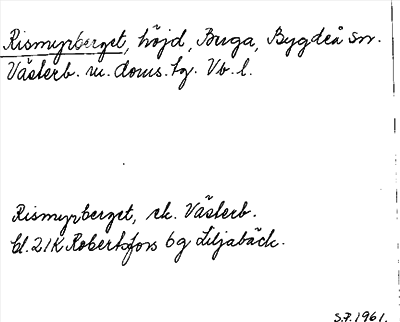 Rismyrberget, höjd, Buga, Bygdeå sn.
Västerb. m. doms. tg. Vb. l.
Rismyrberget, ek. Västerb.
bl. 21K Robertsfors 6g Liljabäck.
S.F. 1961.